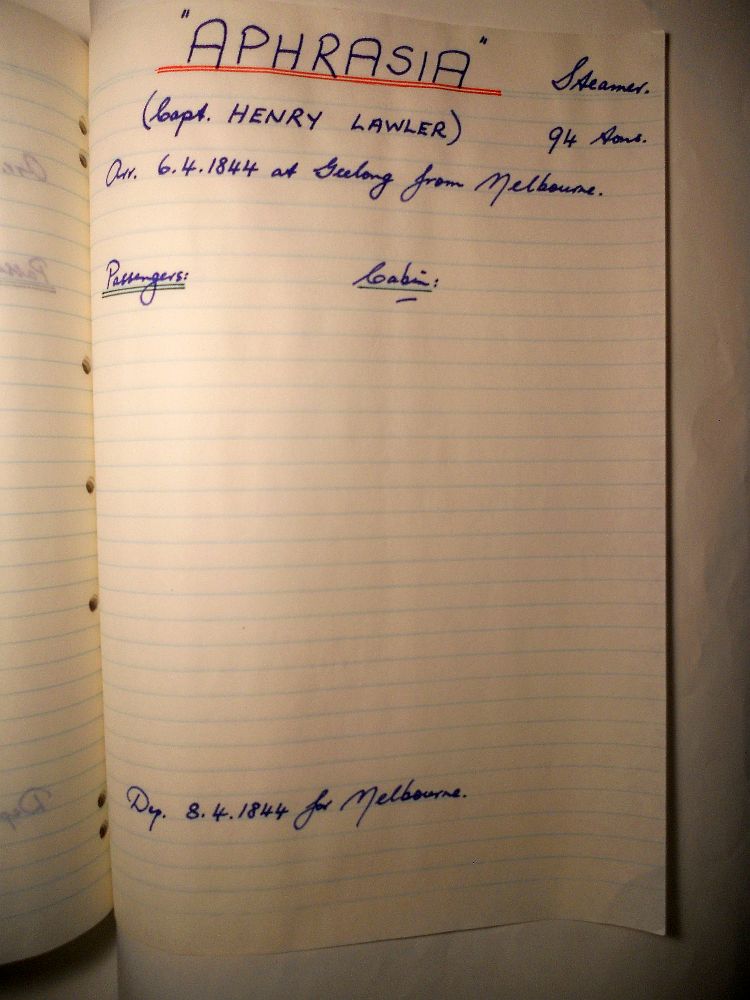 "APHRASIA" Steamer.
(Capt. HENRY LAWLER) 94 tons.
Arr. 6.4.1844 at Geelong from Melbourne.
Passengers: Cabin:
Dep. 8.4.1844 for Melbourne.